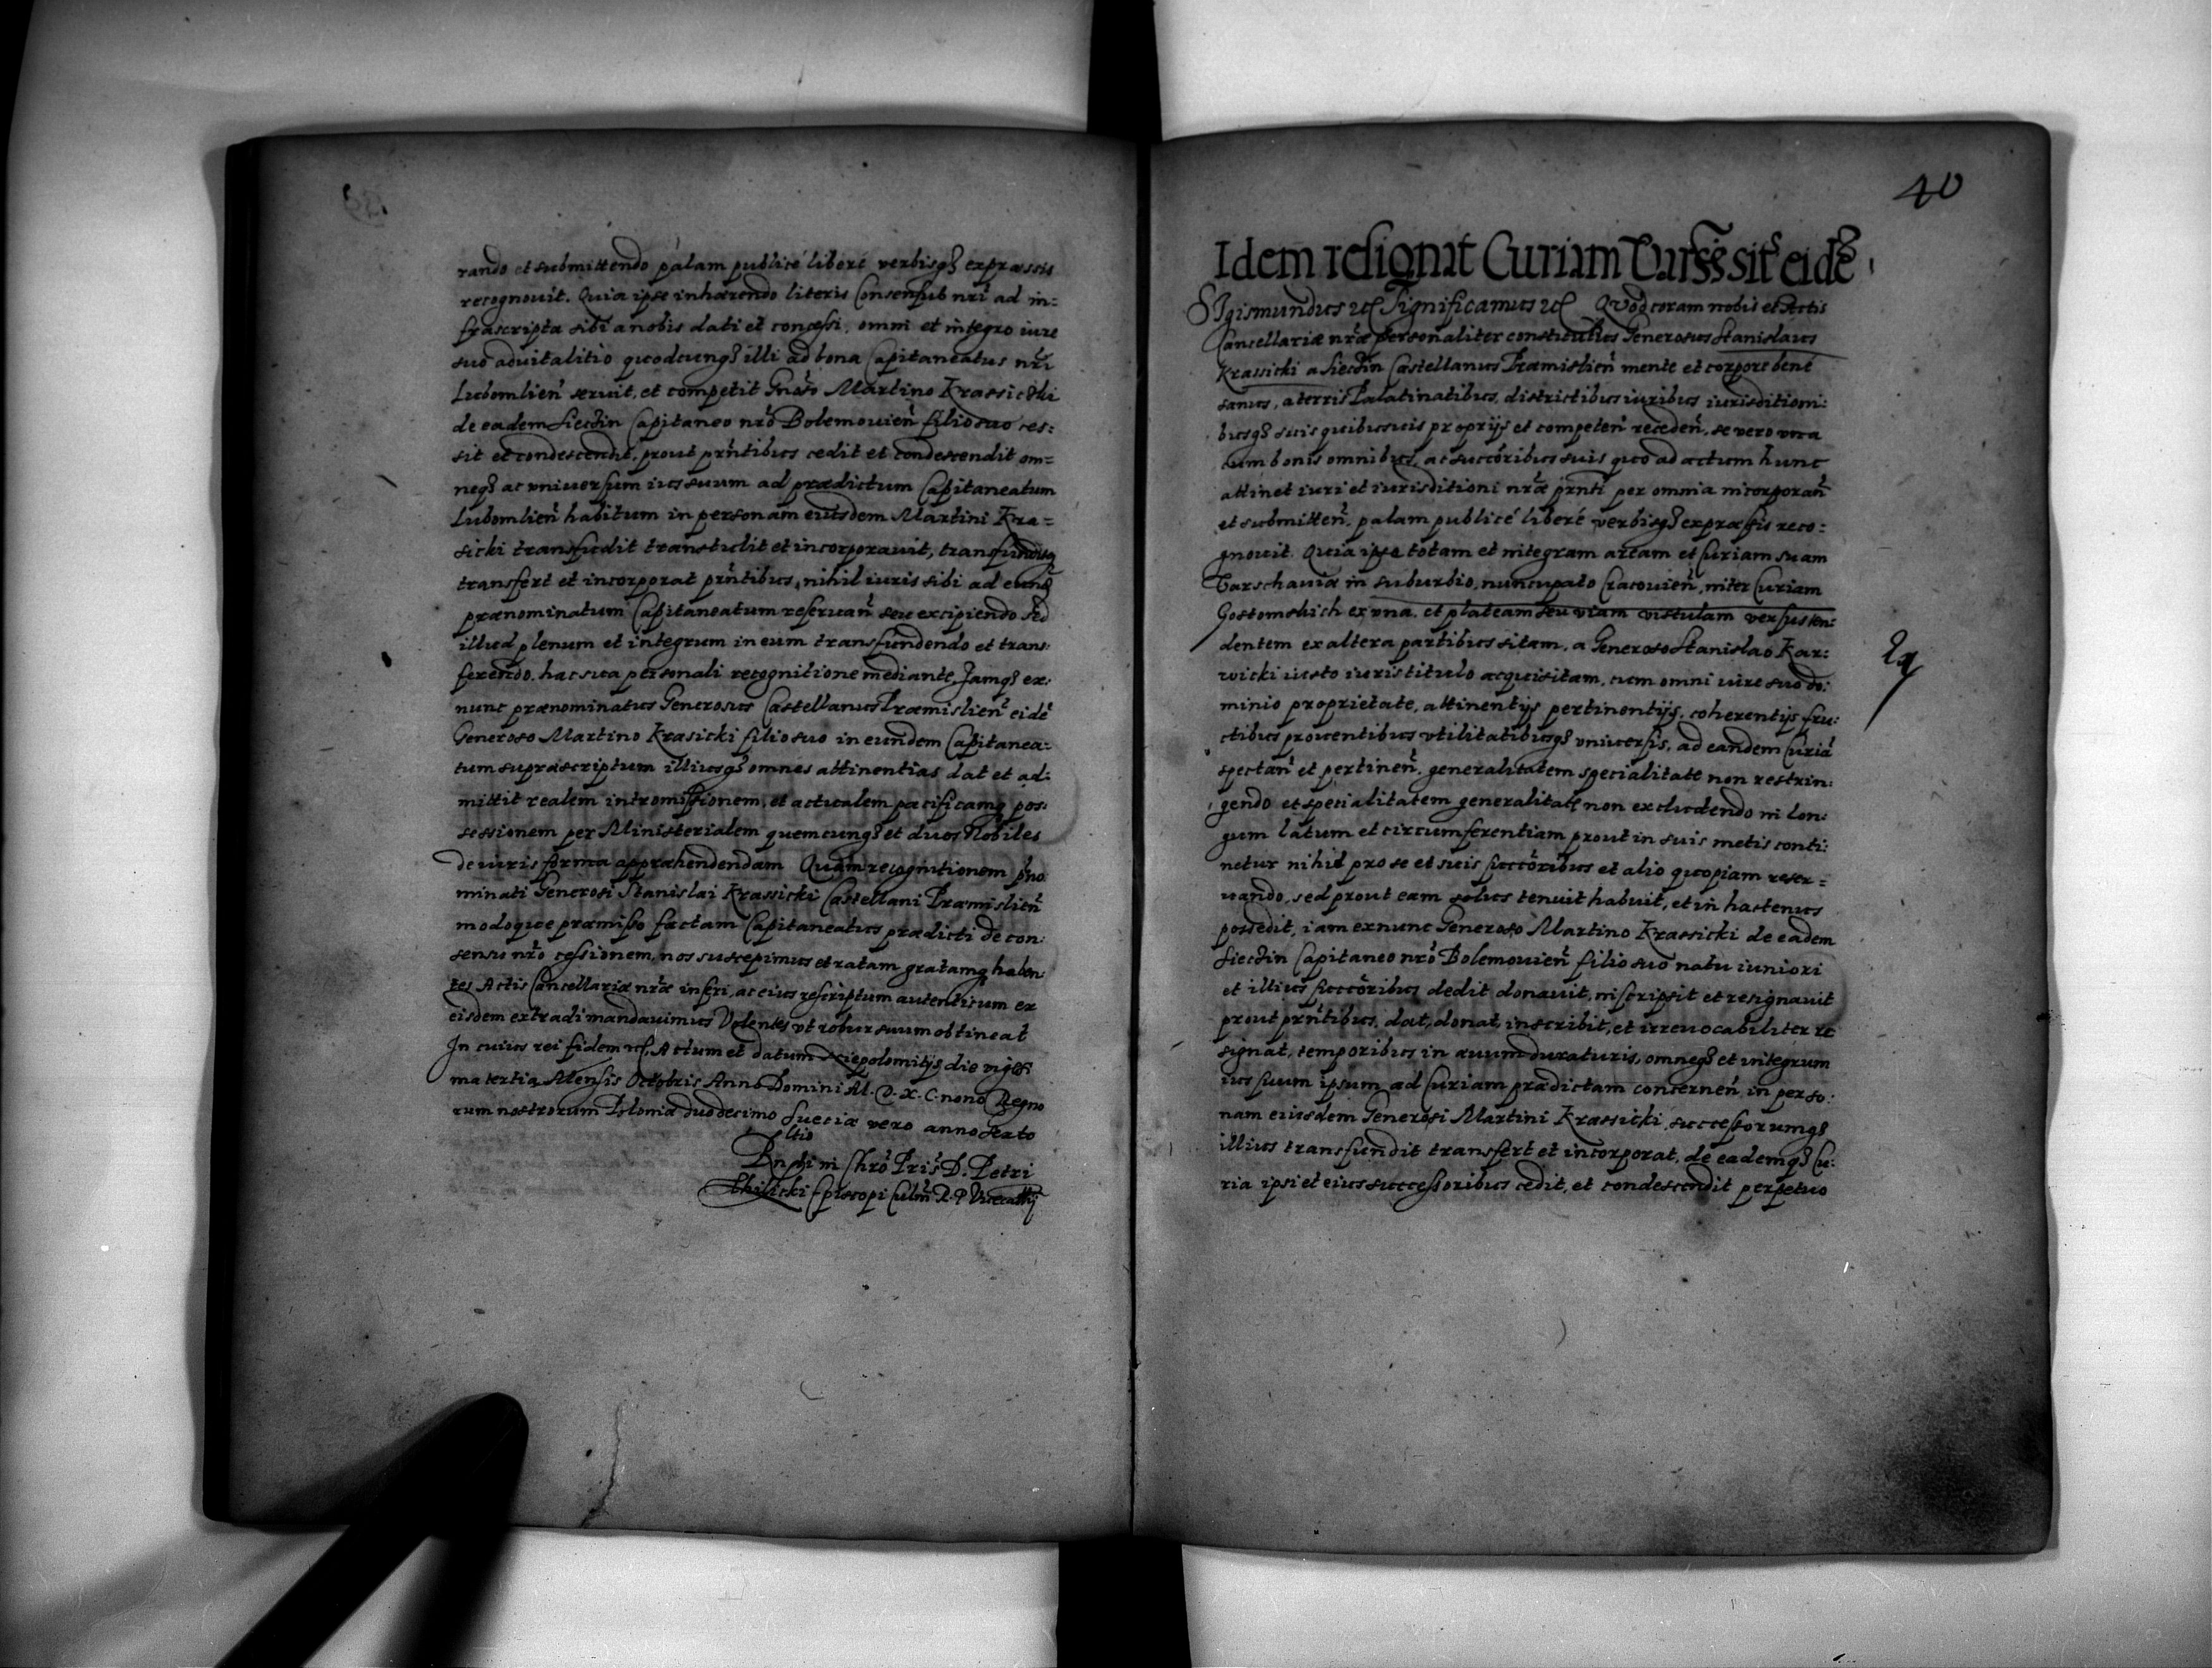 rando et submittendo palam publicé liberé verbisqȝ expraessis
recognouit. Quia ipse inhaerendo literis Consensus nr̃i ad in=
frascripta sibi a nobis dati et concessi, omni et integro iure
suo aduitalitio quodcunqȝ illi ad bona Capitaneatus nr̃i
Lubomlien̄ seruit, et competit Gnoso Martino Krassicki
de eadem Siectin Capitaneo nrõ Bolemouien̄ filio suo ces:
sit et condescendit, prout prñtibus cedit et condescendit om=
neqȝ ac vniuersum ius suum ad praedictum Capitaneatum
Lubomlien̄ habitum in personam eiusdem Martini Kra=
sicki transfudit transtulit et incorporauit, transfunditqȝ
transfert et incorporat prñtibus, nihil iuris sibi ad eunqȝ
praenominatum Capitaneatum reseruan̄ seu excipiendo sed
illud plenum et integrum in eum transfundendo et trans:
ferendo, hac sua personali recognitione mediante, Jamqȝ ex:
nunc praenominatus Generosus Castellanus Praemislien̄ eidē
Generoso Martino Krasicki filio suo in eundem Capitanea:
tum suprascriptum illiusqȝ omnes attinentias dat et ad:
mittit realem intromissionem, et actualem pacificamqȝ pos:
sessionem per Ministerialem quemcunqȝ et duos Nobiles
de iuris forma apprahendendam Quam recognitionem pñno
minati Generosi Stanislai Krassicki Castellani Praemislien̄
modoque praemisso factam Capitaneatus praedicti de con:
sensu nrõ cessionem, nos suscepimus et ratam gratamqȝ haben:
tes Actis Cancellariae nr̃ae inseri, ac eius rescriptum autenticum ex
eisdem extradi mandauimus Volentes vt robur suum obtineat
In cuius rei fidem etc. Actum et datum Niepolomitijs die viges:
ma tertia Mensis Octobris Anno Domini M. D. X. C. nono Regno
rum nostrorum Poloniae duodecimo Sueciae vero anno sexto
ltio
Rndi in Chrõ Pris̃ D. Petri
Tbilicki Episcopi Culm̄ R. P. Vicecanllrij
40
Idem resignat Curiam Varss: sit: eidē
SIgismundus etc Significamus etc QVod coram nobis et Actis
Cancellariae nr̃ae personaliter constitutus Generosus Stanislaus
Krassicki a Siectin Castellanus Praemislien̄ mente et corpore bené
sanus, a terris Palatinatibus, districtibus iuribus iurisditioni:
busqȝ suis quibusuis proprijs et competen̄ receden̄, se vero vna
cum bonis omnibus, ac succõribus suis quo ad actum hunc
attinet iuri et iurisditioni nr̃ae prñti per omnia incorporan̄
et submitten̄, palam publicé liberé verbisqȝ expraessis reco:
gnouit. Quia ipse totam et integram aream et Curiam suam
Varschauiae in suburbio, nuncupato Cracouien̄, inter Curiam
Gostomskich ex vna, et plateam seu viam vistulam versus ten:
dentem ex altera partibus sitam, a Generoso Stanislao Kar:
wicki iusto iuris titulo acquisitam, cum omni iure suo do:
minio proprietate, attinentijs pertinentijs, coherentijs fru:
ctibus prouentibus vtilitatibusqȝ vniuersis, ad eandem Curiā
spectan̄ et pertinen̄, generalitatem specialitate non restrin:
gendo et specialitatem generalitate non excludendo in lon:
gum latum et circumferentiam prout in suis metis conti:
netur nihil pro se et suis succõribus et alio quopiam reser=
uando, sed prout eam solus tenuit habuit, et in hactenus
possedit, iam ex nunc Generoso Martino Krassicki de eadem
Siectin Capitaneo nrõ Bolemouien̄ filio suo natu iuniori
et illius succõribus dedit donauit, inscripsit et resignauit
prout prñtibus, dat, donat, inscribit, et irreuocabiliter re
signat, temporibus in aeuum duraturis, omneqȝ et integrum
ius suum ipsum ad Curiam praedictam concernen̄, in perso:
nam eiusdem Generosi Martini Krassicki, successorumqȝ
illius transfundit transfert et incorporat, de eademqȝ Cu:
ria ipsi et eius successoribus cedit, et condescendit perpetuo